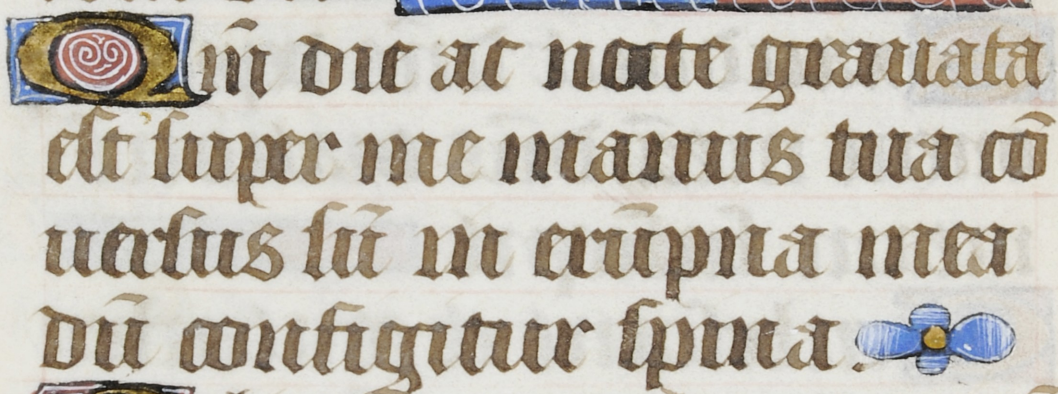 Qm̄ die ac nocte grauata
est super me manus tua cō
uersus sū in erūpna mea
dū configitur spina.